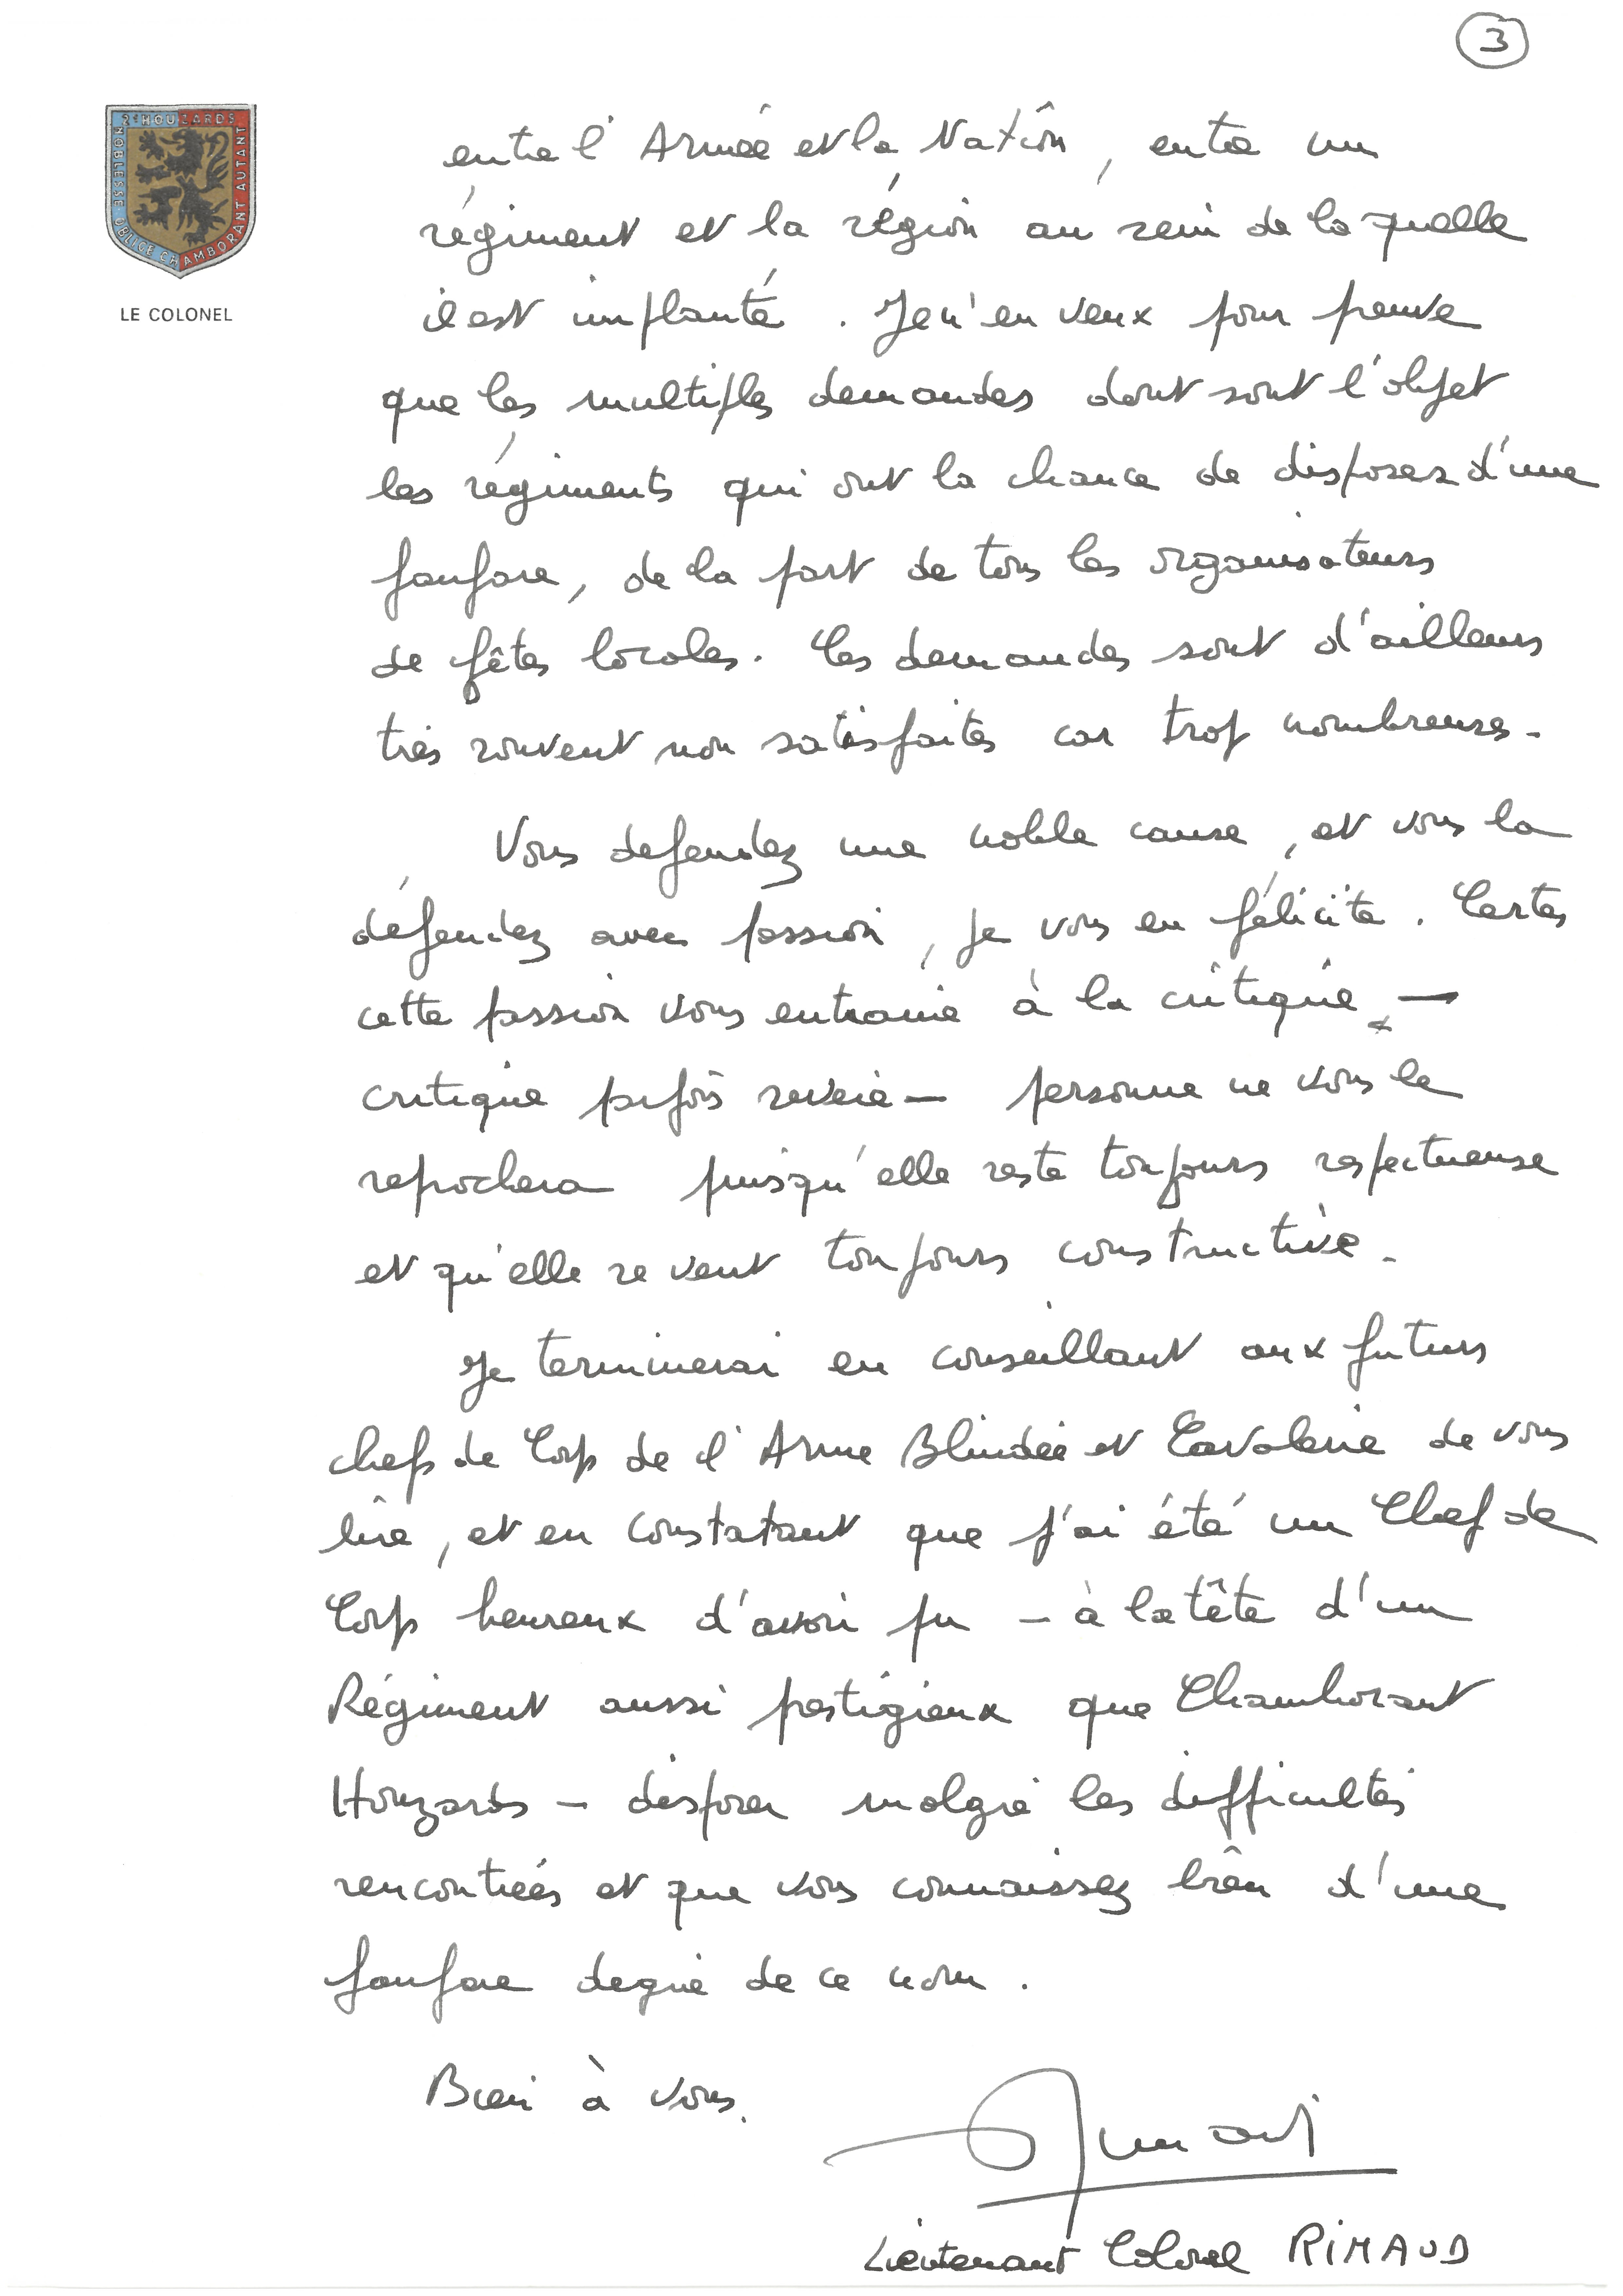 3
2e HOUZARDS
NOBLESSE OBLIGE CHAMBORANT AUTANT
LE COLONEL
entre l'Armée et la Nation, entre un
régiment et la région au sein de laquelle
il est implanté. Je n'en veux pour preuve
que les multiples demandes dont sont l'objet
les régiments qui ont la chance de disposer d'une
fanfare, de la part de tous les organisateurs
de fêtes locales. Ces demandes sont d'ailleurs
très souvent non satisfaites car trop nombreuses.
Vous defendez une noble cause, et vous la
défendez avec passion, je vous en félicite. Certes
cette passion vous entraine à la critique —
critique parfois sévère — personne ne vous le
reprochera puisqu'elle reste toujours respectueuse
et qu'elle se veut toujours constructive.
Je terminerai en conseillant aux futurs
chefs de Corps de l'Arme Blindée et Cavalerie de vous
lire, et en constatant que j'ai été un Chef de
Corps heureux d'avoir pu — à la tête d'un
Régiment aussi prestigieux que Chamborant
Houzards — disposer malgré les difficultés
rencontrées et que vous connaissez bien d'une
fanfare digne de ce nom.
Bien à vous.
Lieutenant Colonel RIMAUD